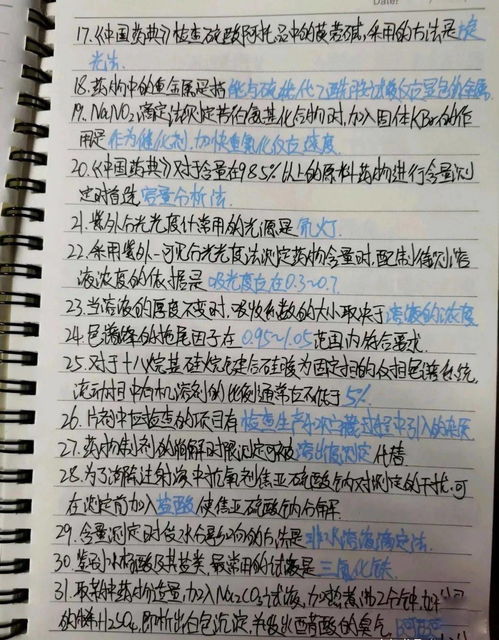 17.《中国药典》检查硫酸阿托品中的莨菪碱,采用的方法是旋
光法.
18.药物中的重金属是指能与硫代乙酰胺试液反应显色的金属.
19.NaNO₂滴定法测定芳伯氨基化合物时,加入固体KBr的作
用是作为催化剂,加快重氮化反应速度.
20.《中国药典》对于含量在98.5%以上的原料药物进行含量测
定时首选容量分析法.
21.紫外分光光度计常用的光源是氘灯.
22.采用紫外-可见分光光度法测定药物含量时,配制待测溶
液浓度的依据是吸光度在0.3~0.7.
23.当溶液的厚度不变时,吸收系数的大小取决于溶液的浓度
24.色谱峰的拖尾因子在0.95~1.05范围内符合要求.
25.对于十八烷基硅烷键合硅胶为固定相的反相色谱系统,
流动相中有机溶剂的比例通常应不低于5%.
26.片剂中应检查的项目有检查生产和贮藏过程中引入的杂质
27.药物制剂的崩解时限测定可被溶出度测定代替
28.为了消除注射液中抗氧剂焦亚硫酸钠对测定的干扰,可
在测定前加入盐酸使焦亚硫酸钠分解.
29.含量测定时受水分影响的方法是非水溶液滴定法.
30.鉴别水杨酸及其盐类,最常用的试液是三氯化铁.
31.取某药物适量,加入Na₂CO₃试液,加热煮沸2分钟,加
的稀H₂SO₄,即析出白色沉淀,并发出醋酸的臭气.